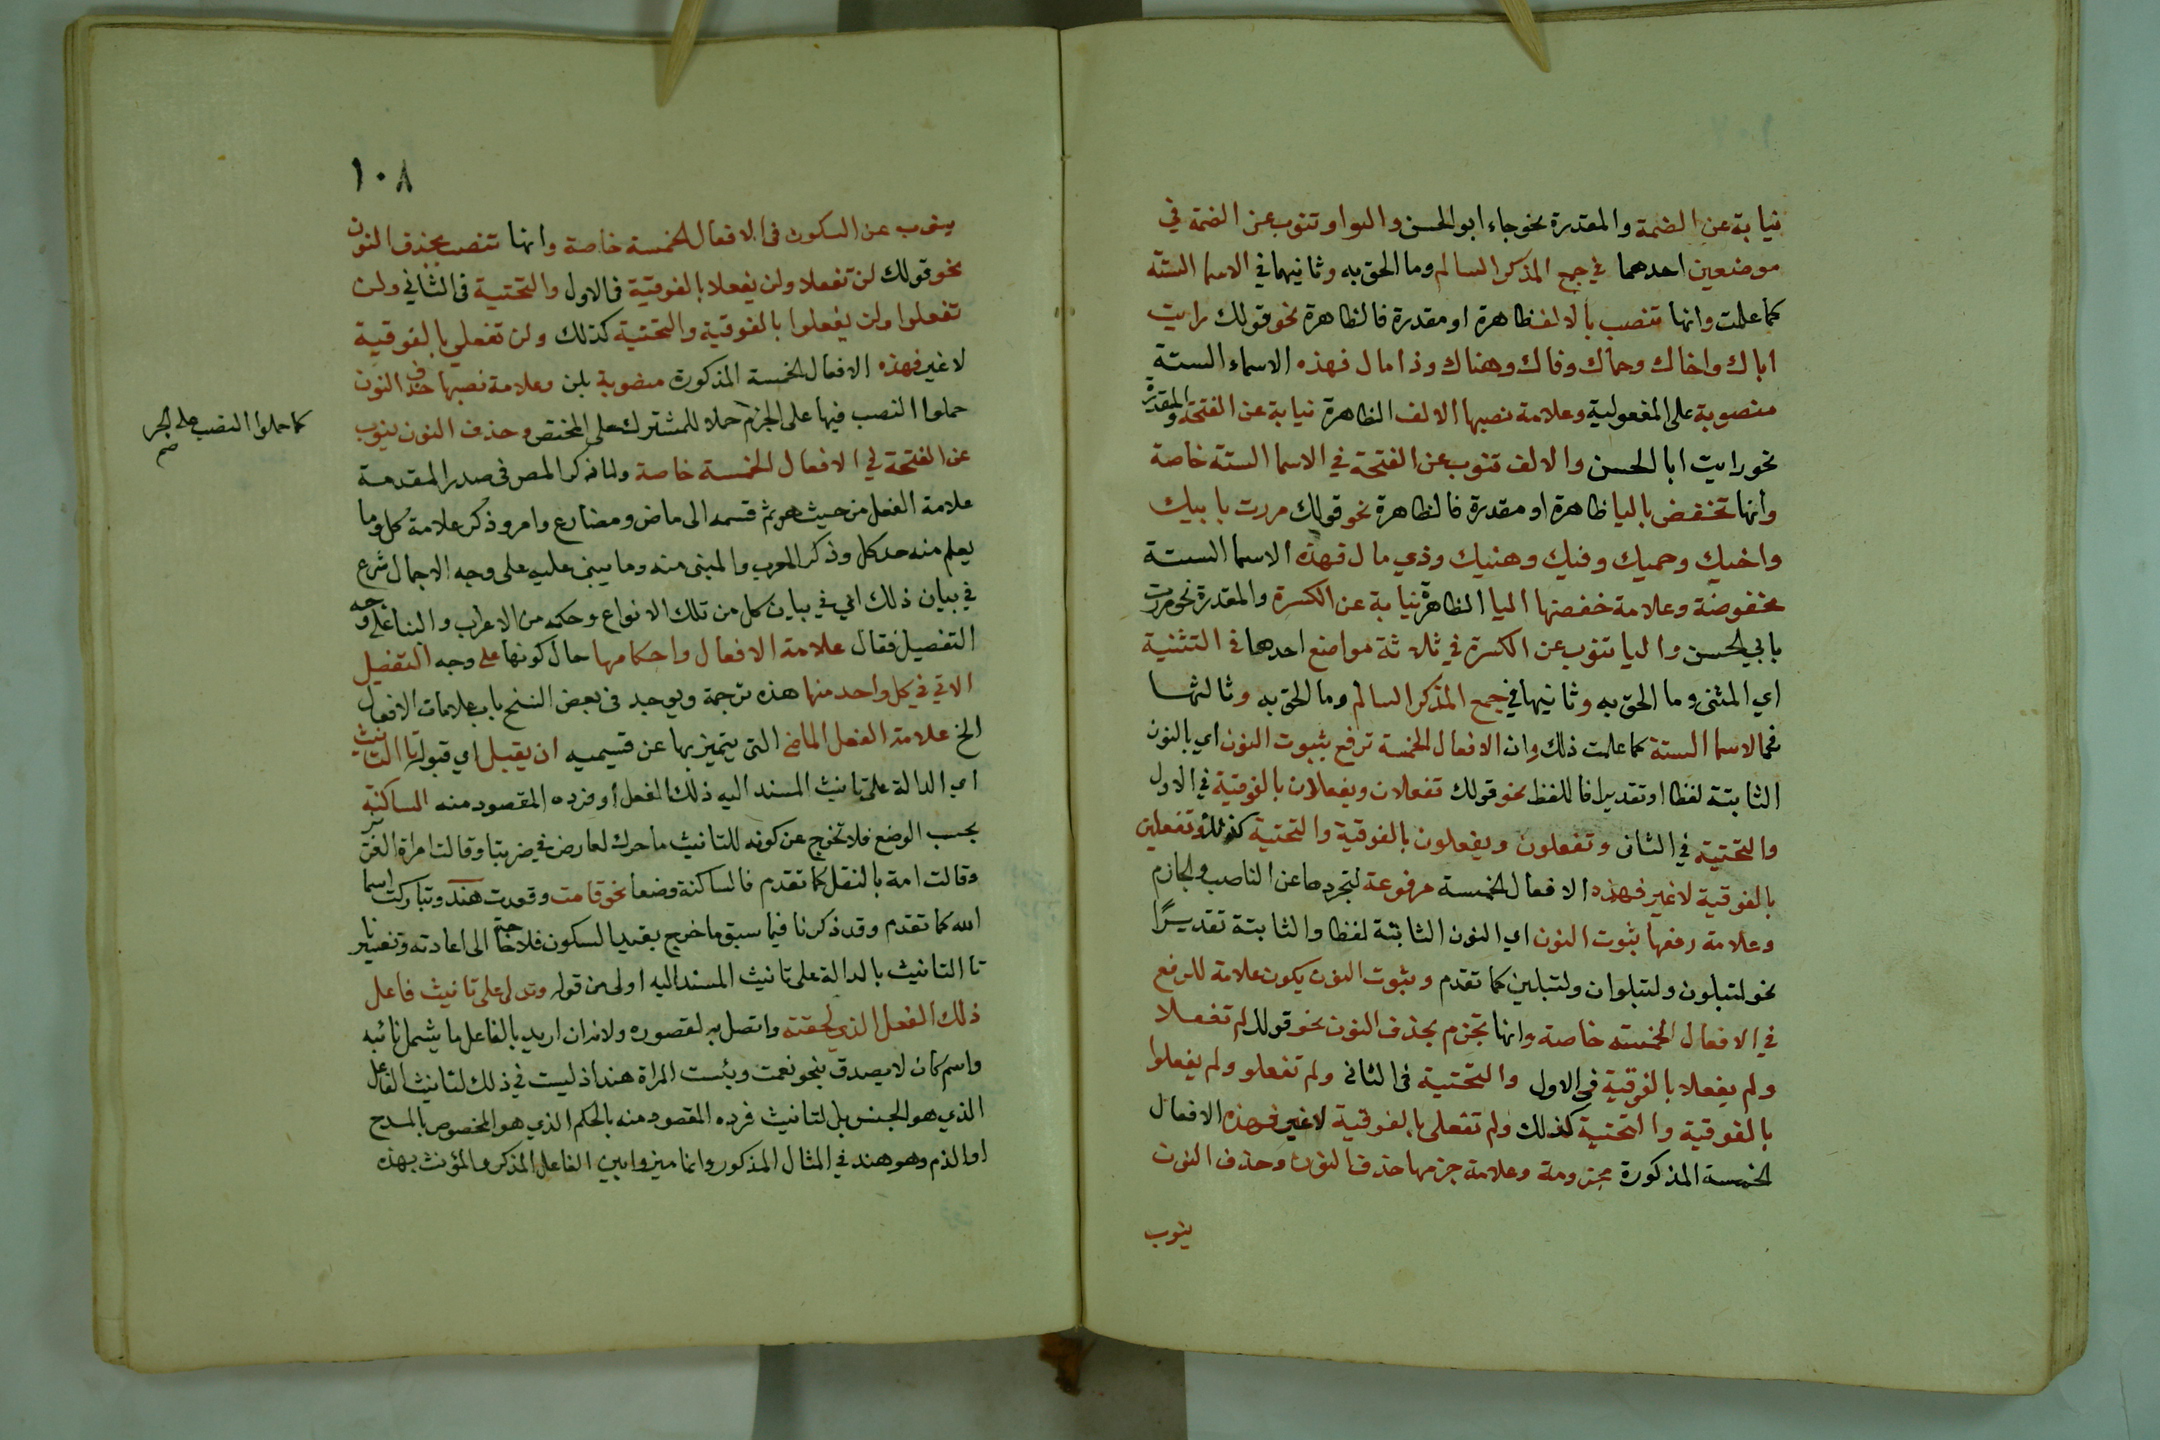 نيابة عن الضمة والمقدرة نحو جاء ابو الحسن والواو تنوب عن الضمة في
موضعين احدهما في جمع المذكر السالم وما الحق به وثانيهما في الاسما الستة
كما علمت وانها تنصب بالالف ظاهرة او مقدرة فالظاهرة نحو قولك رايت
اباك واخاك وحماك وفاك وهناك وذا مال فهذه الاسماء الستة
منصوبة على المفعولية وعلامة نصبها الالف الظاهرة نيابة عن الفتحة والمقدرة
نحو رايت ابا الحسن والالف تنوب عن الفتحة في الاسما الستة خاصة
وانها تخفض باليا ظاهرة او مقدرة فالظاهرة نحو قولك مررت بابيك
واخيك وحميك وفيك وهنيك وذي مال فهذه الاسما الستة
مخفوضة وعلامة خفضها اليا الظاهرة نيابة عن الكسرة والمقدرة نحو مررت
بابي الحسن واليا تنوب عن الكسرة في ثلاثة مواضع احدها في التثنية
اي المثنى وما الحق به وثانيها في جمع المذكر السالم وما الحق به وثالثها
في الاسما الستة كما علمت ذلك وان الافعال الخمسة ترفع بثبوت النون اي بالنون
الثابتة لفظا او تقديرا فاللفظ نحو قولك تفعلان ويفعلان بالفوقية في الاول
والتحتية في الثانى وتفعلون ويفعلون بالفوقية والتحتية كذلك وتفعلين
بالفوقية لا غير فهذه الافعال الخمسة مرفوعة لتجردها عن الناصب والجازم
وعلامة رفعها ثبوت النون اي النون الثابتة لفظا والثابتة تقديرًا
نحو لتبلون ولتبلوان ولتبلين كما تقدم وثبوت النون يكون علامة للرفع
في الافعال الخمسة خاصة وانها تجزم بحذف النون نحو قولك لم تفعلا
ولم يفعلا بالفوقية فى الاول والتحتية فى الثانى ولم تفعلو ولم يفعلوا
بالفوقية والتحتية كذلك ولم تفعلى بالفوقية لا غير فهذه الافعال
الخمسة المذكورة مجزومة وعلامة جزمها حذف النون وحذف النون
ينوب
١٠٨
ينوب عن السكون فى الافعال الخمسة خاصة وانها تنصب بحذف النون
نحو قولك لن تفعلا ولن يفعلا بالفوقية فى الاول والتحتية فى الثاني ولن
تفعلوا ولن يفعلوا بالفوقية والتحتية كذلك ولن تفعلي بالفوقية
لا غير فهذه الافعال الخمسة المذكورة منصوبة بلن وعلامة نصبها حذف النون
حملوا النصب فيها على الجزم حملا للمشترك على المختص وحذف النون ينوب
كما حملوا النصب على الجر
صح
عن الفتحة في الافعال الخمسة خاصة ولما ذكر المص فى صدر المقدمة
علامة الفعل من حيث هو ثم قسمه الى ماض ومضارع وامر وذكر علامة كل وما
يعلم منه حد كل وذكر المعرب والمبنى منه وما يبنى عليه على وجه الاجمال شرع
في بيان ذلك اي في بيان كل من تلك الانواع وحكمه من الاعراب والبنا على وجه
التفصيل فقال علامة الافعال واحكامها حال كونها على وجه التفصيل
الاتي في كل واحد منها هذه ترجمة ويوجد فى بعض النسخ باب علامات الافعال
الخ علامة الفعل الماضي التى يتميز بها عن قسيميه ان يقبل اي قبوله تا التانيث
اي الدالة على تانيث المسند اليه ذلك الفعل او فرده المقصود منه الساكنة
بحسب الوضع فلا تخرج عن كونه للتانيث ما حرك لعارض في ضربتا وقالت امراة العزيز
وقالت امة بالنقل كما تقدم فالساكنة وضعا نحو قامت وقعدت هند وتباركت اسما
الله كما تقدم وقد ذكرنا فيما سبق ما خرج بقيد السكون فلا حاجة الى اعادته وتفسيرنا
تا التانيث بالدالة على تانيث المسند اليه اولى من قوله وتدل على تانيث فاعل
ذلك الفعل الذي لحقته واتصل به لقصوره ولانه ان اريد بالفاعل ما يشمل نائبه
واسم كان لا يصدق بنحو نعمت وبئست المراة هند اذ ليست في ذلك لتانيث الفاعل
الذي هو الجنس بل لتانيث فرده المقصود منه بالحكم الذي هو المخصوص بالمدح
او الذم وهو هند في المثال المذكور وانما ميزوا بين الفاعل المذكر والمؤنث بهذه